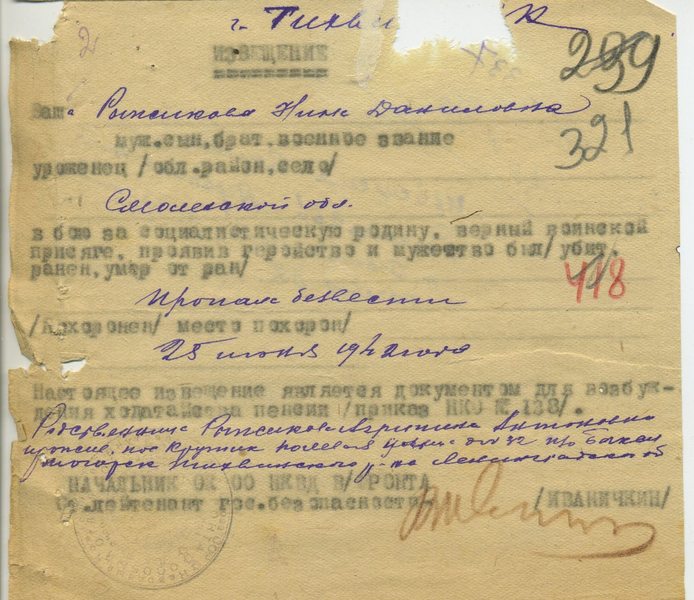 г. Тихвин
2
ИЗВЕЩЕНИЕ
299
321
Ваш а Рыжикова Нина Даниловна
муж.сын,брат.военное звание
уроженец /обл.район,село/
Смоленской обл.
в бою за социалистическую родину, верный воинской
присяге, проявив геройство и мужество был/ убит,
ранен,умер от ран/
418
Пропала безвести
/похоронен/ место похорон/
25 июня 1942 года
Настоящее извещение является документом для возбуж-
дения ходатайства пенсии /приказ НКО № 138/.
Родственница Рыжикова Агрипина Антоновна
Тихвинского р-на Ленинградской об
НАЧАЛЬНИК ОК ОО НКВД В/ФРОНТА
Ст.лейтенант гос.безопасности /ИВАНИЧКИН/